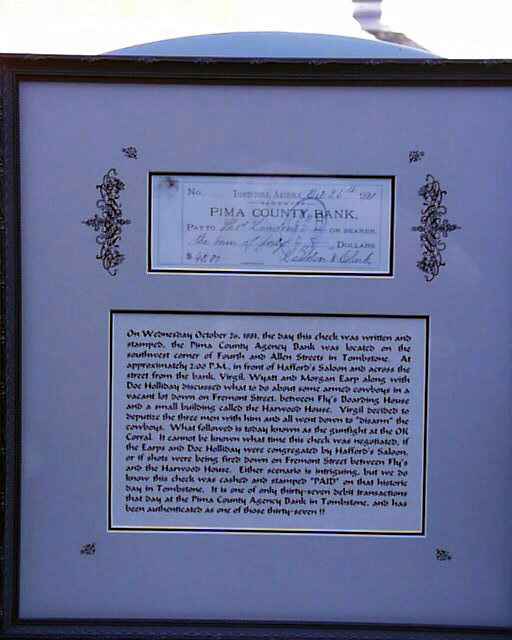 No. Tombstone, Arizona, Oct 26th 1881
PIMA COUNTY BANK,
PAY TO OR BEARER,
the sum of forty DOLLARS
$ 40.00 & Clark
On Wednesday October 26, 1881, the day this check was written and
stamped, the Pima County Agency Bank was located on the
southwest corner of Fourth and Allen Streets in Tombstone. At
approximately 2:00 P.M., in front of Hafford's Saloon and across the
street from the bank, Virgil, Wyatt and Morgan Earp along with
Doc Holliday discussed what to do about some armed cowboys in a
vacant lot down on Fremont Street, between Fly's Boarding House
and a small building called the Harwood House. Virgil decided to
deputize the three men with him and all went down to "disarm" the
cowboys. What followed is today known as the gunfight at the OK
Corral. It cannot be known what time this check was negotiated, if
the Earps and Doc Holliday were congregated by Hafford's Saloon,
or if shots were being fired down on Fremont Street between Fly's
and the Harwood House. Either scenario is intriguing, but we do
know this check was cashed and stamped "PAID" on that historic
day in Tombstone. It is one of only thirty-seven debit transactions
that day at the Pima County Agency Bank in Tombstone, and has
been authenticated as one of those thirty-seven !!